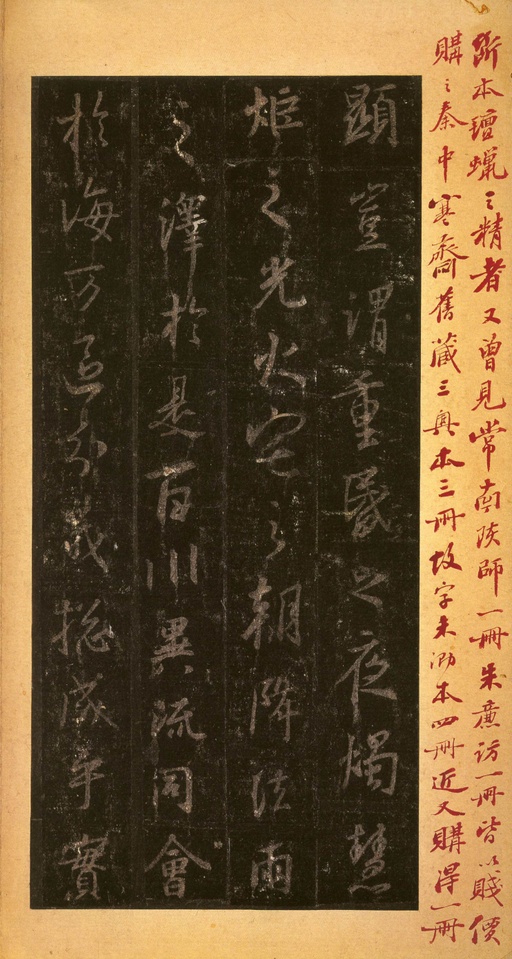 斷本氈蠟之精者又曾見常南陔師一冊朱廉訪一冊皆以賤價
購之秦中寒齋舊藏三與本三冊故字未泐本四冊近又購得一冊
顯豈謂重昬之夜燭慧
炬之光火宅之朝降法雨
之澤於是百川異流同會
於海万區分義捴成乎實